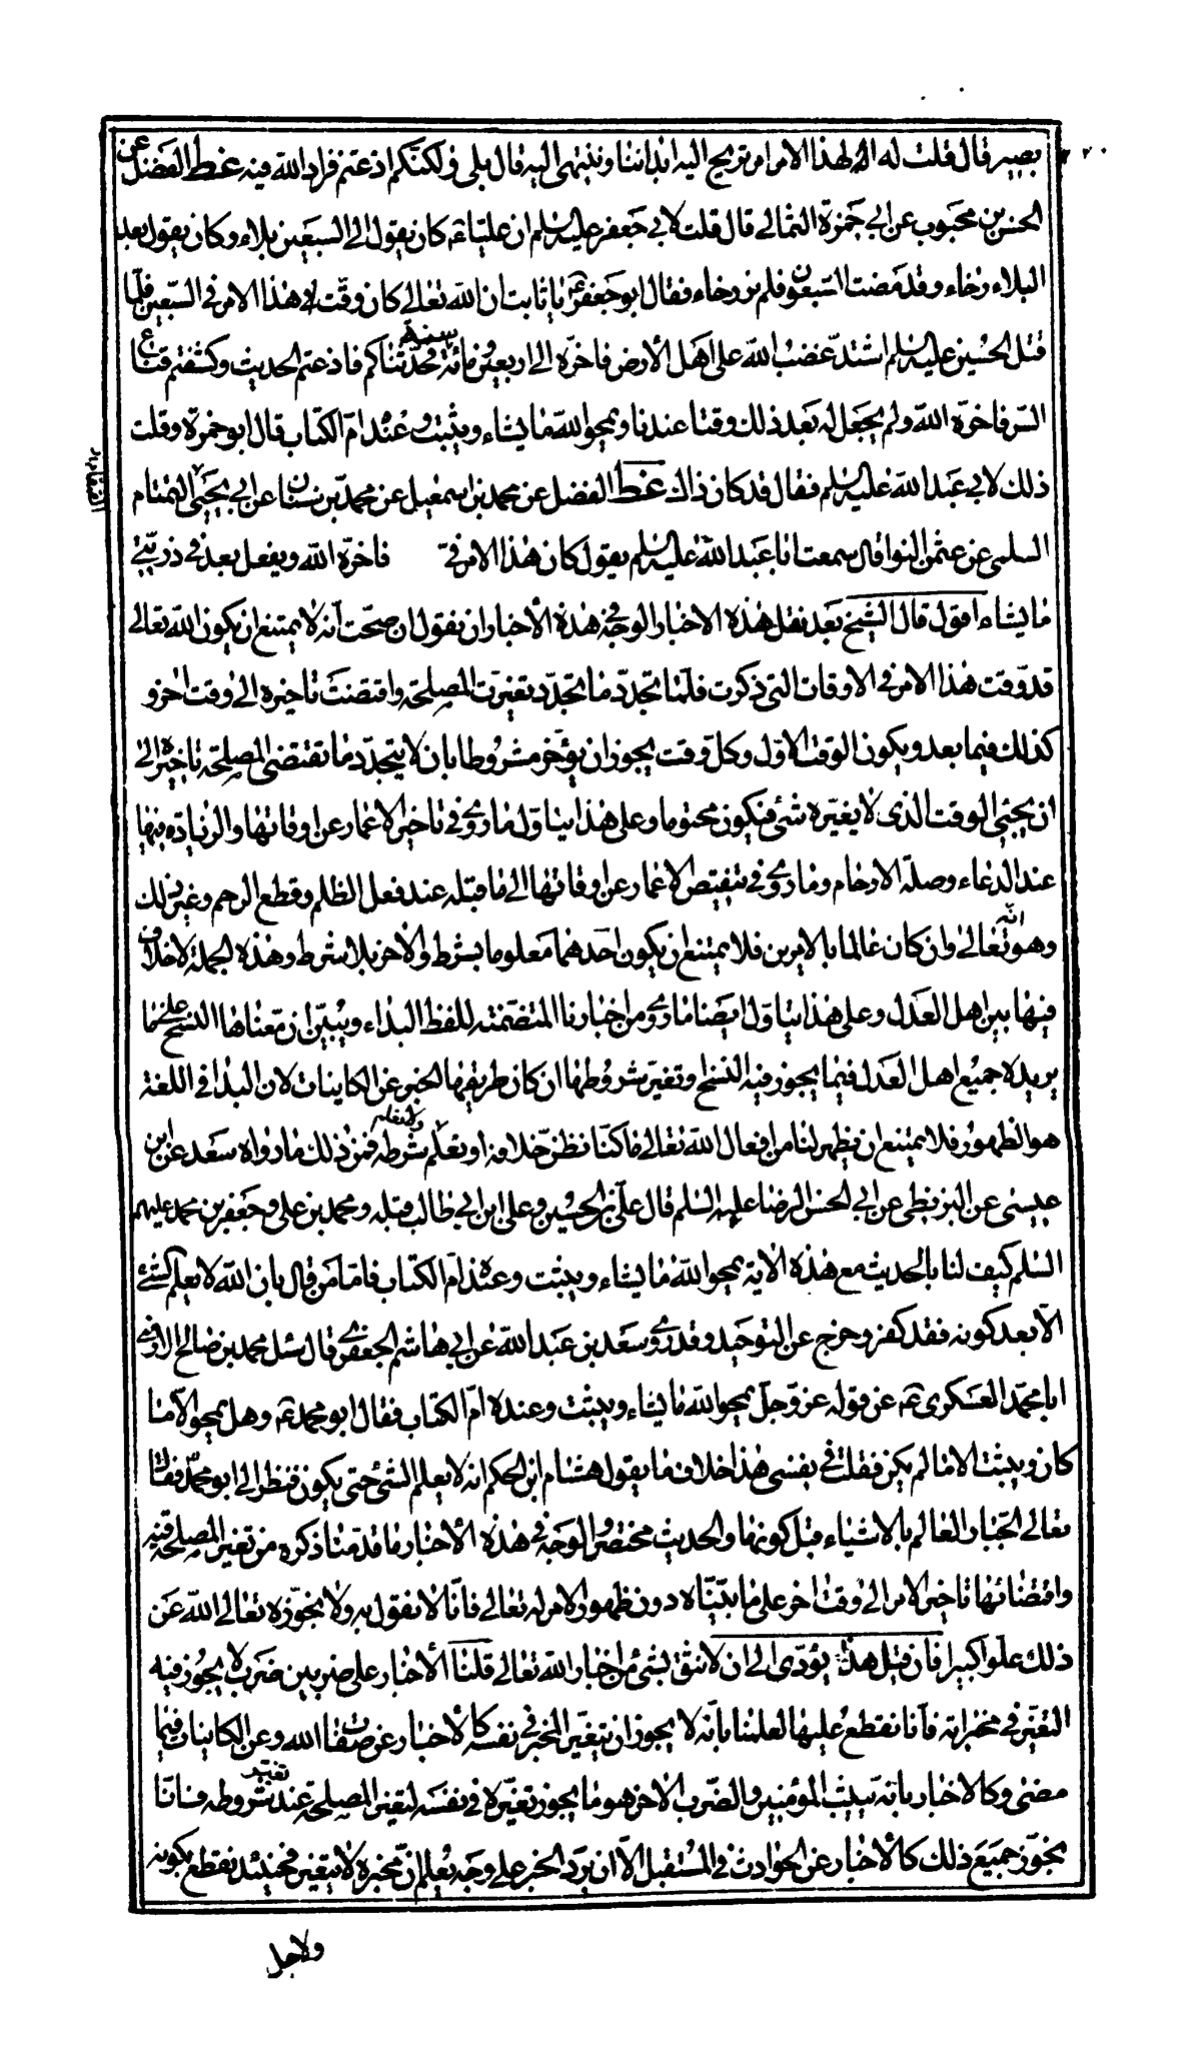 ٢٢٠
بصير قال قلت له أله لهذا الامر امر تريح اليه ابداننا وننتهي اليه قال بلى ولكنكم اذعتم فزاد الله فيه غط الفضل عن
الحسن بن محبوب عن ابي حمزة الثمالي قال قلت لابي جعفر عليه السلم ان عليا ع كان يقول الى السبعين بلاء وكان يقول بعد
البلاء رخاء وقد مضت السبعون فلم نر رخاء فقال ابو جعفر ع يا ثابت ان الله تعالى كان وقت هذا الامر في السبعين فلما
قتل الحسين عليه السلم اشتد غضب الله على اهل الأرض فاخره الى اربعين ومائة سنة فحدثناكم فاذعتم الحديث وكشفتم قناع
السر فاخره الله ولم يجعل له بعد ذلك وقتا عندنا ويمحو الله ما يشاء ويثبت وعنده ام الكتاب قال ابو حمزة وقلت
ذلك لابي عبد الله عليه السلم فقال قد كان ذاك غط الفضل عن محمد بن اسمعيل عن محمد بن سنان عن ابي يحيى التمتام
السلمي عن عثمن النوا قال سمعت ابا عبد الله عليه السلم يقول كان هذا الامر في فاخره الله ويفعل بعد في ذريتي
ما يشاء اقول قال الشيخ بعد نقل هذه الاخبار الوجه في هذه الأخبار ان نقول ان صحت انه لا يمتنع ان يكون الله تعالى
قد وقت هذا الامر في الاوقات التي ذكرت فلما تجدد ما تجدد تغيرت المصلحة واقتضت تاخيره الى وقت اخر و
كذلك فيما بعد ويكون الوقت الاول وكل وقت يجوز ان يؤخر مشروطا بان لا يتجدد ما تقتضي المصلحة تاخيره الى
ان يجيئ الوقت الذي لا يغيره شئ فيكون محتوما وعلى هذا يتاول ما روي في تاخير الاعمار عن اوقاتها والزيادة فيها
عند الدعاء وصلة الارحام وما روي في تنقيص الاعمار عن اوقاتها الى ما قبله عند فعل الظلم وقطع الرحم وغير ذلك
وهو انه تعالى وان كان عالما بالامرين فلا يمتنع ان يكون احدهما معلوما بشرط والأخر بلا شرط وهذه الجملة لا خلاف
فيها بين اهل العدل وعلى هذا يتاول ايضا ما روي من اخبارنا المتضمنة للفظ البداء ويبين ان معناها النسخ على ما
يريده جميع اهل العدل فيما يجوز فيه النسخ او تغير شروطها ان كان طريقها الخبر عن الكاينات لان البدا في اللغة
هو الظهور فلا يمتنع ان يظهر لنا من افعال الله تعالى ما كنا نظن خلافه او نعلم ولا نعلم شرطه فمن ذلك ما رواه سعد عن ابن
عيسى عن البزنطي عن ابي الحسن الرضا عليه السلم قال علي بن الحسين وعلي ابن ابي طالب قبله ومحمد بن علي وجعفر بن محمد عليهم
السلم كيف لنا بالحديث مع هذه الاية يمحو الله ما يشاء ويثبت وعنده ام الكتاب فاما من قال بان الله لا يعلم الشئ
الا بعد كونه فقد كفر وخرج عن التوحيد وقد روى سعد بن عبد الله عن ابي هاشم الجعفري قال سئل محمد بن صالح الارمني
ابا محمد العسكري ع عن قوله عز وجل يمحو الله ما يشاء ويثبت وعنده ام الكتاب فقال ابو محمد ع وهل يمحو الا ما
كان ويثبت الا ما لم يكن فقلت في نفسي هذا خلاف ما يقول هشام ابن الحكم انه لا يعلم الشئ حتى يكون فنظر الي ابو محمد فقال
تعالى الجبار العالم بالاشياء قبل كونها والحديث مختصر والوجه في هذه الأخبار ما قدمنا ذكره من تغير المصلحة فيه
واقتضائها تاخير الامر الى وقت اخر على ما بيناه دون ظهور الامر له تعالى فانا لا نقول به ولا نجوزه تعالى الله عن
ذلك علوا كبيرا فان قيل هذا يؤدي الى ان لا نثق بشئ من اخبار الله تعالى قلنا الأخبار على ضربين ضرب لا يجوز فيه
التغير في مخبراته فانا نقطع عليها لعلمنا بانه لا يجوز ان يتغير المخبر في نفسه كالأخبار عن صفات الله وعن الكاينات فيما
مضى وكالاخبار بانه يثيب المؤمنين والضرب الاخر هو ما يجوز تغيره في نفسه لتغير المصلحة عند تغير شروطه فانا
نجوز جميع ذلك كالأخبار عن الحوادث في المستقبل الا ان يرد الخبر على وجه يعلم ان مخبره لا يتغير فحينئذ نقطع بكونه
ولاجل